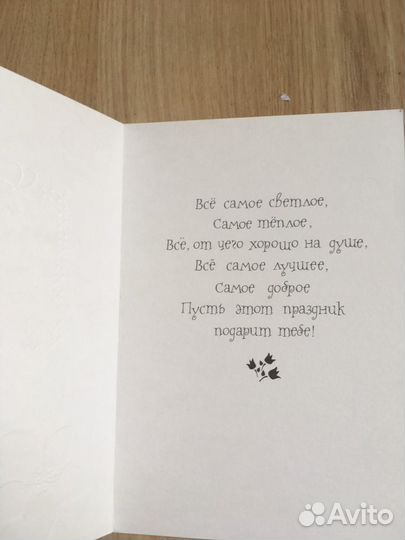 Всё самое светлое,
Самое тёплое,
Всё, от чего хорошо на душе,
Всё самое лучшее,
Самое доброе
Пусть этот праздник
подарит тебе!
Avito